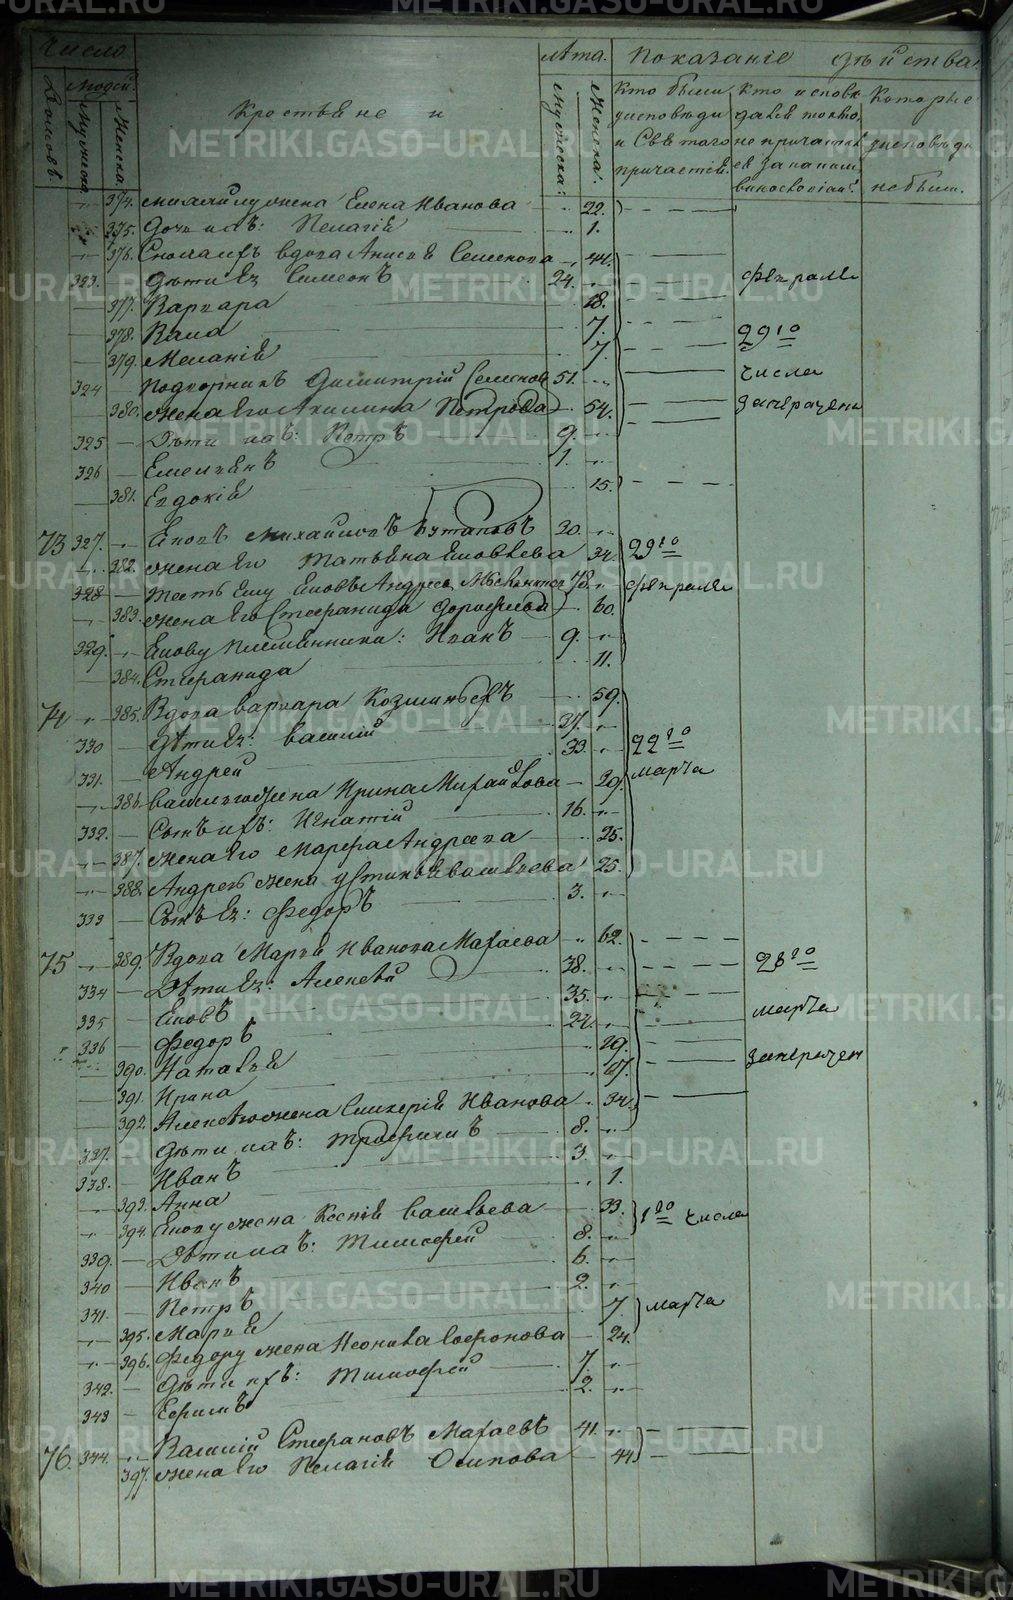 Число
Людей.
Домовъ.
Мужеска.
Женска.
Крестьяне и
Лѣта.
Мужеска.
Женска.
Показаніе дѣйства.
Кто были у исповѣди и Свѣтаго причастія.
Кто исповѣдался токмо, не причастился за какимъ винословіем.
Которые у исповѣди не были.
374. Михаилу жена Елена Иванова 22.
375. Дочь ихъ: Пелагія 1.
376. Вдова Анисія Семенова 44.
323. Дѣти ея Симеонъ 24.
Февраля
377. Варвара 18.
378. Васса 7.
29го
379. Меланія 7.
числа
324 Подворникъ Димитрій Семеновъ 51.
380. жена его Акилина Петрова 54.
325 Дѣти ихъ: Петръ 9.
326 Емельянъ 1.
381. Евдокія 15.
73 327. Іаковъ Михайловъ 30.
382. жена его Татьяна 34.
29го
328 тесть ему Іаковъ Андреевъ 78.
февраля
383. жена его Стефанида Дорофеева 60.
329. Іакову племянники: Иванъ 9.
384. Стефанида 11.
74 385. Вдова Варвара Козмина 59.
330 Дѣти ея: Василій 37.
331. Андрей 33.
22го
марта
386. Василью жена Ирина Михайлова 39.
332. Сынъ ихъ: Игнатій 16.
387. жена его Марфа Андреева 25.
388. Андрею жена Устинья Васильева 25.
333 Сынъ ея: Федоръ 3.
75 389. Вдова Марья Иванова Махаева 62.
334 Дѣти ея: Алексѣй 38.
23го
335 Іаковъ 35.
336 Федоръ 24.
марта
390. Наталья 19.
391. Ирина 17.
392. Алексѣю жена Гликерія Иванова 34.
337. Дѣти ихъ: Трофимъ 8.
338. Иванъ 3.
393. Анна 1.
394. Іакову жена Ксенія Васильева 33.
1го числа
339. Дѣти ихъ: Тимофей 8.
340 Иванъ 6.
341. Петръ 2.
395. Марья 7
марта
396. Федору жена Неонила Софонова 24.
342. Дѣти ихъ: Тимофей 7.
343 Ефимъ 2.
76. 344. Василій Стефановъ Махаевъ 41.
397. жена его Пелагія Осипова 44
METRIKI.GASO-URAL.RU